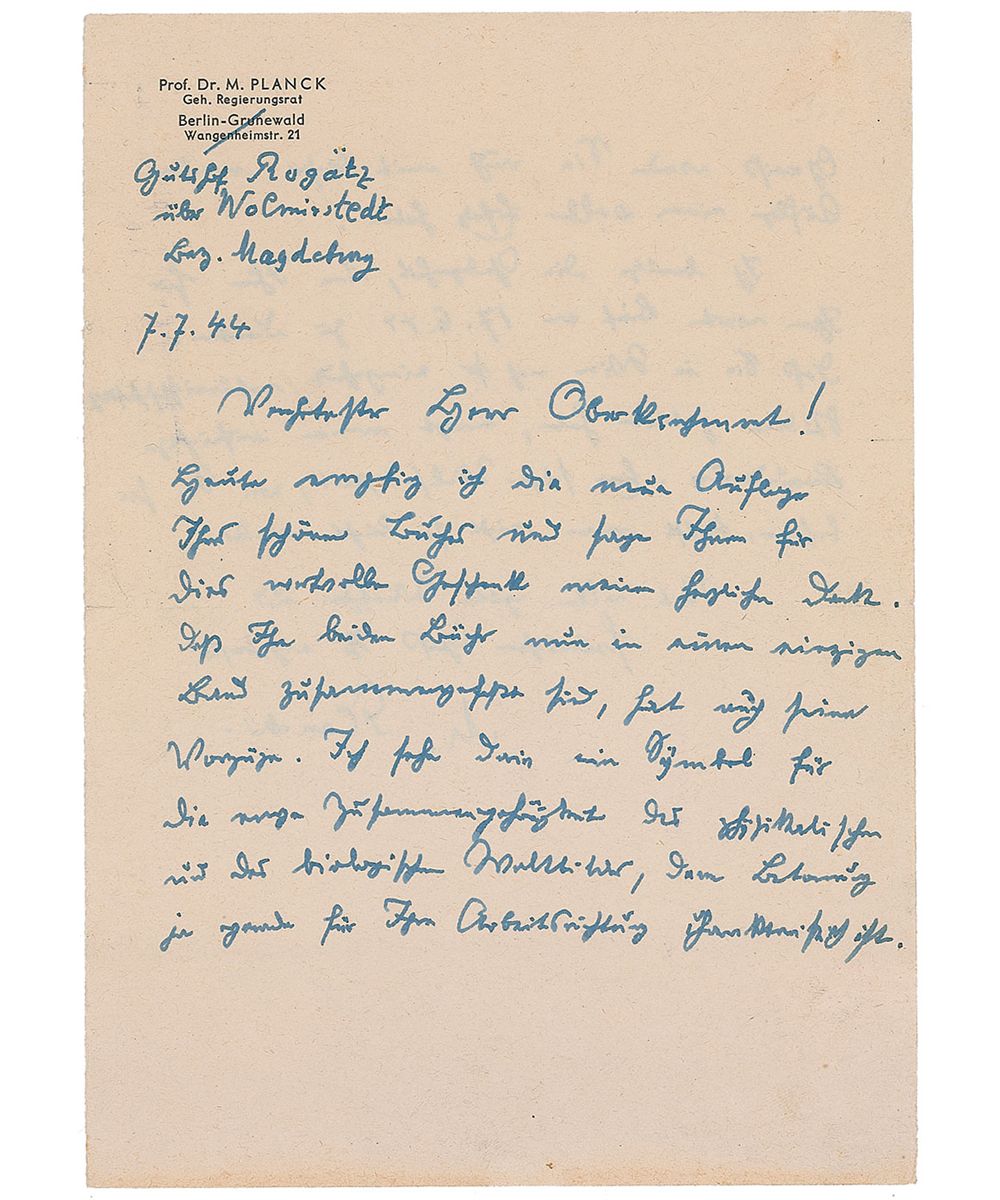 Prof. Dr. M. PLANCK
Geh. Regierungsrat
Berlin-Grunewald
Wangenheimstr. 21
Gutshof Rogätz
über Wolmirstedt
Bez. Magdeburg
7.7.44
Verehrtester Herr
Heute empfing ich die neue Auflage
Ihres schönen Buches und sage Ihnen für
dies wertvolle Geschenk meinen herzlichen Dank.
Daß Ihre beiden Bücher nun in einen einzigen
Band zusammengefaßt sind, hat auch seine
Vorzüge. Ich sehe darin ein Symbol für
die enge Zusammengehörigkeit des physikalischen
und des biologischen Weltbildes, deren Betonung
ja gerade für Ihre Arbeitsrichtung charakteristisch ist.